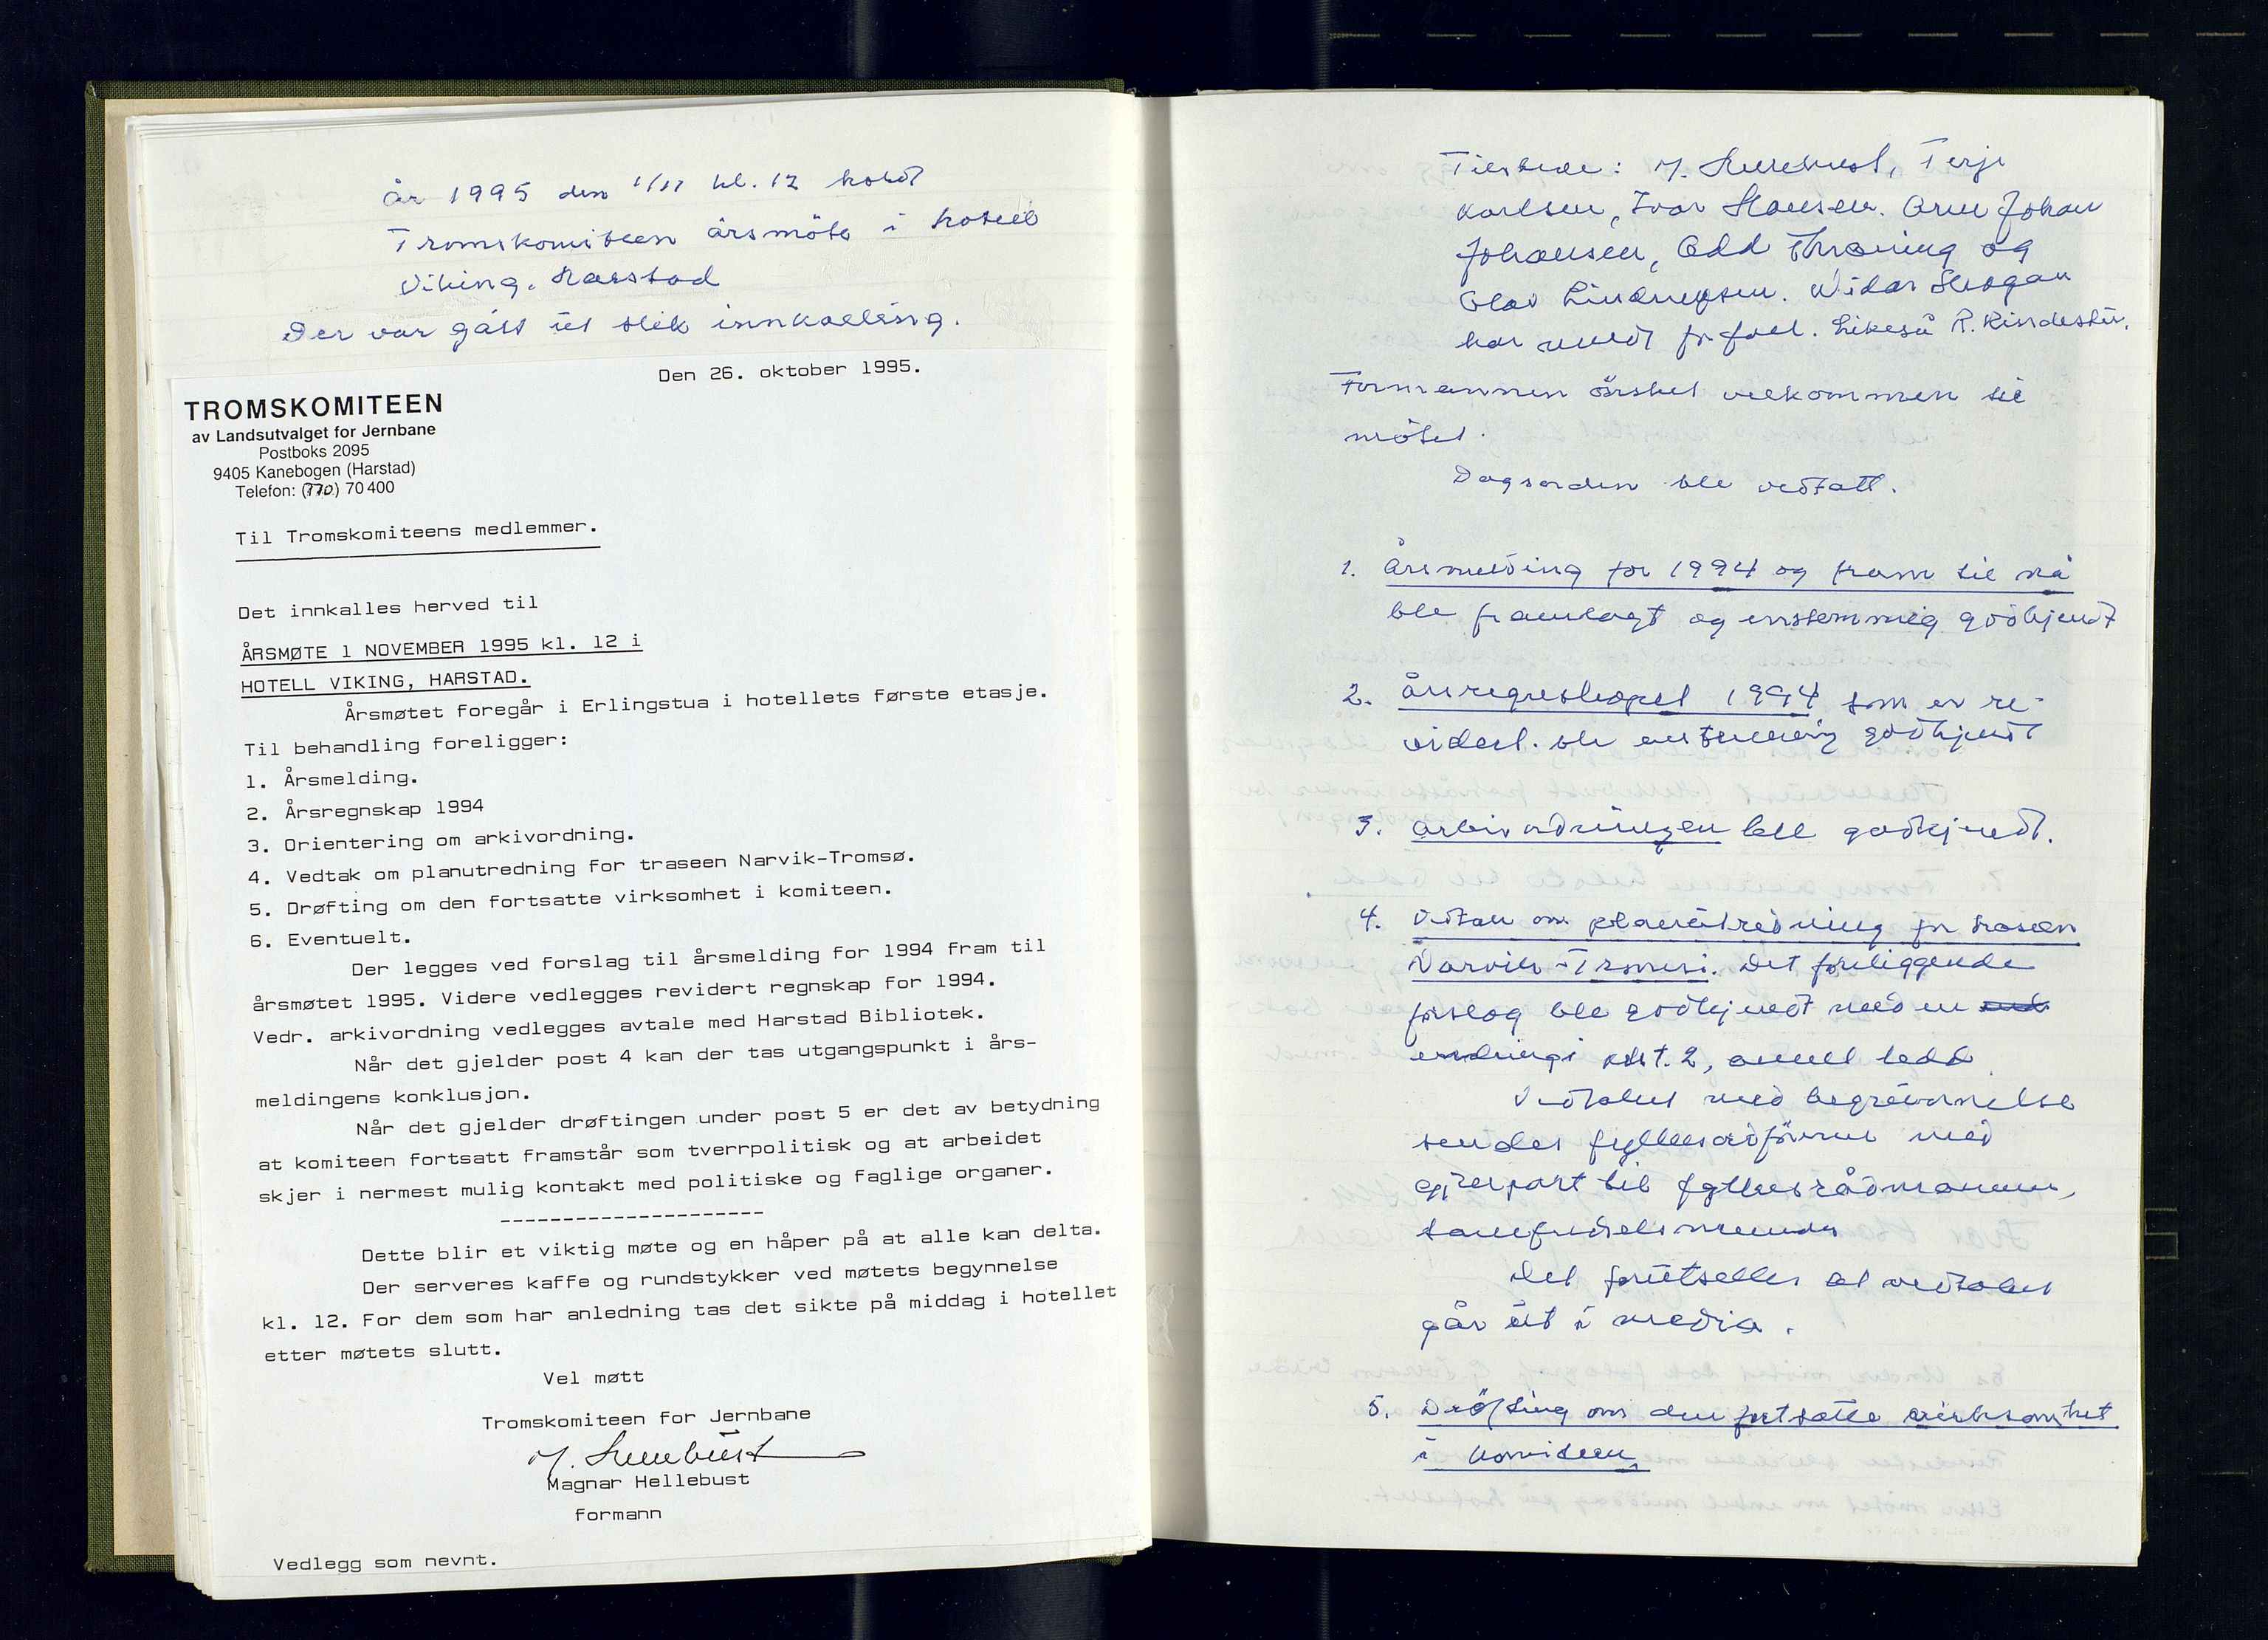 År 1995 den 1/11 kl. 12 holdt
Tromskomiteen årsmöte i hotell
Viking, Harstad
Der var gått ut slik innkalling.
Den 26. oktober 1995.
TROMSKOMITEEN
av Landsutvalget for Jernbane
Postboks 2095
9405 Kanebogen (Harstad)
Telefon: (770) 70 400
Til Tromskomiteens medlemmer.
Det innkalles herved til
ÅRSMØTE 1 NOVEMBER 1995 kl. 12 i
HOTELL VIKING, HARSTAD.
Årsmøtet foregår i Erlingstua i hotellets første etasje.
Til behandling foreligger:
1. Årsmelding.
2. Årsregnskap 1994
3. Orientering om arkivordning.
4. Vedtak om planutredning for traseen Narvik-Tromsø.
5. Drøfting om den fortsatte virksomhet i komiteen.
6. Eventuelt.
Der legges ved forslag til årsmelding for 1994 fram til
årsmøtet 1995. Videre vedlegges revidert regnskap for 1994.
Vedr. arkivordning vedlegges avtale med Harstad Bibliotek.
Når det gjelder post 4 kan der tas utgangspunkt i års-
meldingens konklusjon.
Når det gjelder drøftingen under post 5 er det av betydning
at komiteen fortsatt framstår som tverrpolitisk og at arbeidet
skjer i nermest mulig kontakt med politiske og faglige organer.
---------------------
Dette blir et viktig møte og en håper på at alle kan delta.
Der serveres kaffe og rundstykker ved møtets begynnelse
kl. 12. For dem som har anledning tas det sikte på middag i hotellet
etter møtets slutt.
Vel møtt
Tromskomiteen for Jernbane
M. Hellebust
Magnar Hellebust
formann
Vedlegg som nevnt.
Tilstede: M. Hellebust, Terje
Karlsen, Ivar Hansen. Arne Johan
Johansen, Odd Thraning og
Olav Lindrupsen. Widar Skogan
har meldt forfall. Likeså R. Rindestu.
Formannen önsket velkommen til
mötet.
Dagsorden ble vedtatt.
1. Årsmelding for 1994 og fram til nå
ble framlagt og enstemmig godkjendt
2. Årsregnskapet 1994 som er re-
videst. ble enstemmig godkjendt
3. Arkivordningen ble godkjendt.
4. Vedtak om planutredning for traseen
Narvik-Tromsö. Det foreliggende
forslag ble godkjendt med en
endring i pkt. 2, annet ledd.
Vedtaket med begrunnelse
sendes fylkesordföreren med
gjenpart til fylkesrådmannen,
samferdsels
Det forutsettes at vedtaket
går ut i media.
5. Dröfting om den fortsatte virksomhet
i komiteen.